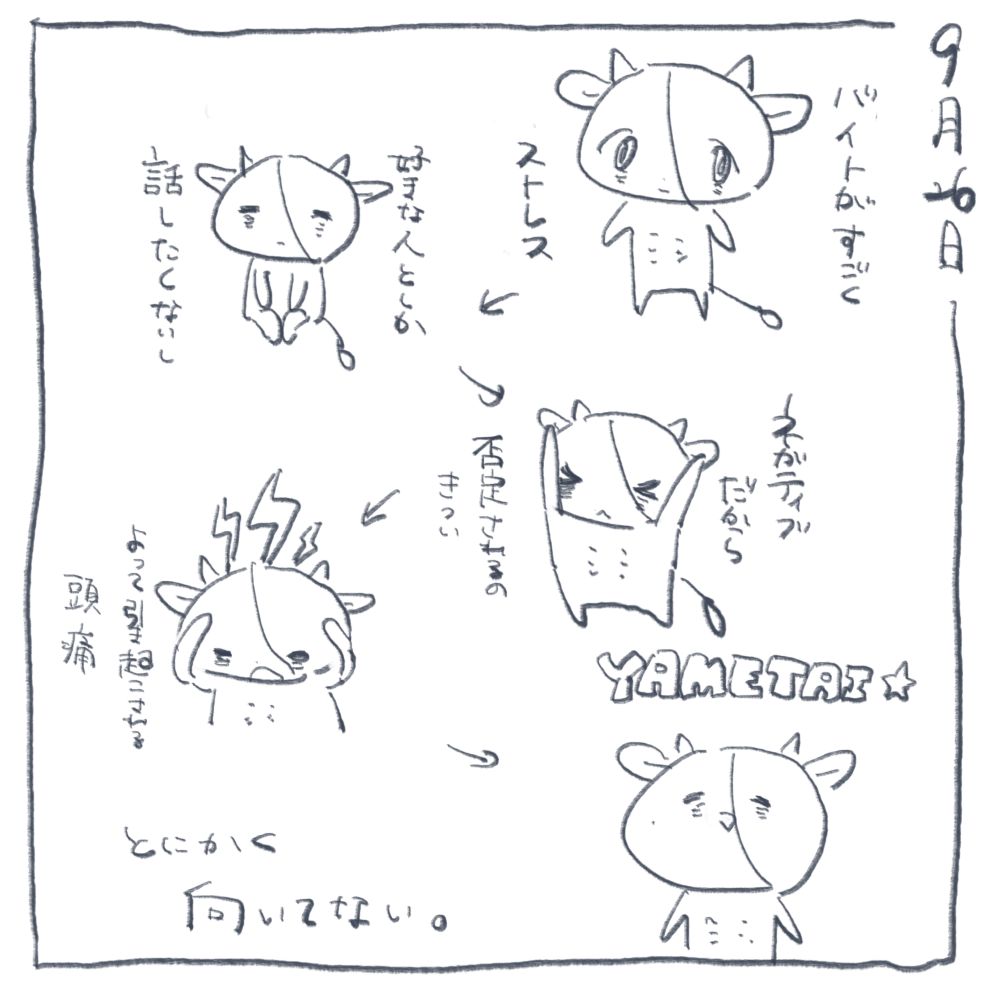 9月26日
バイトがすごく
ストレス
好きな人としか
話したくないし
ネガティブ
だから
否定されるの
きつい
よって引き起こされる
頭痛
YAMETAI☆
とにかく
向いてない。